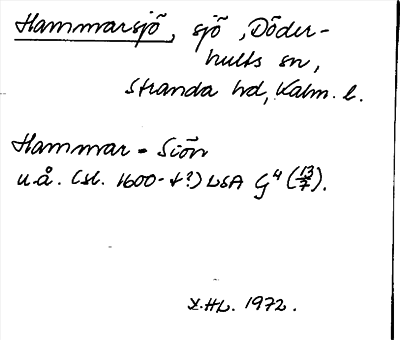 Hammarsjö, sjö, Döder-
hults sn,
Stranda hd, Kalm. l.
Hammar - Siön
u.å. (sl. 1600-t?) LSA G⁴ (13/7).
V.HL. 1972.